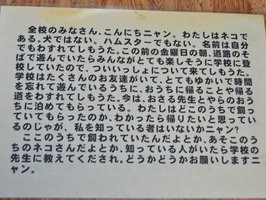 全校のみなさん、こんにちニャン。わたしはネコで
ある。犬ではない。ハムスターでもない。名前は自分
でもわすれてしもうた。この前の金曜日の朝、道路のそ
ばで遊んでいたらみんながとても楽しそうに学校に登
校していたので、ついいっしょについて来てしもうた。
学校はたくさんのお友達がいて、とてもゆかいで時間
を忘れて遊んでいるうちに、おうちに帰ることや帰る
道をわすれてしもうた。今は、おさる先生とやらのおう
ちに泊めてもらっている。わたしはどこのうちで飼う
ていてもらったのか、わかったら帰りたいと思ってい
るのじゃが、私を知っている者はいないかニャン?
ここのうちで飼われていたんだよとか、あそこのう
ちのネコさんだよとか、知っている人がいたら学校の
先生に教えてくだされ。どうかどうかお願いしますニ
ャン。